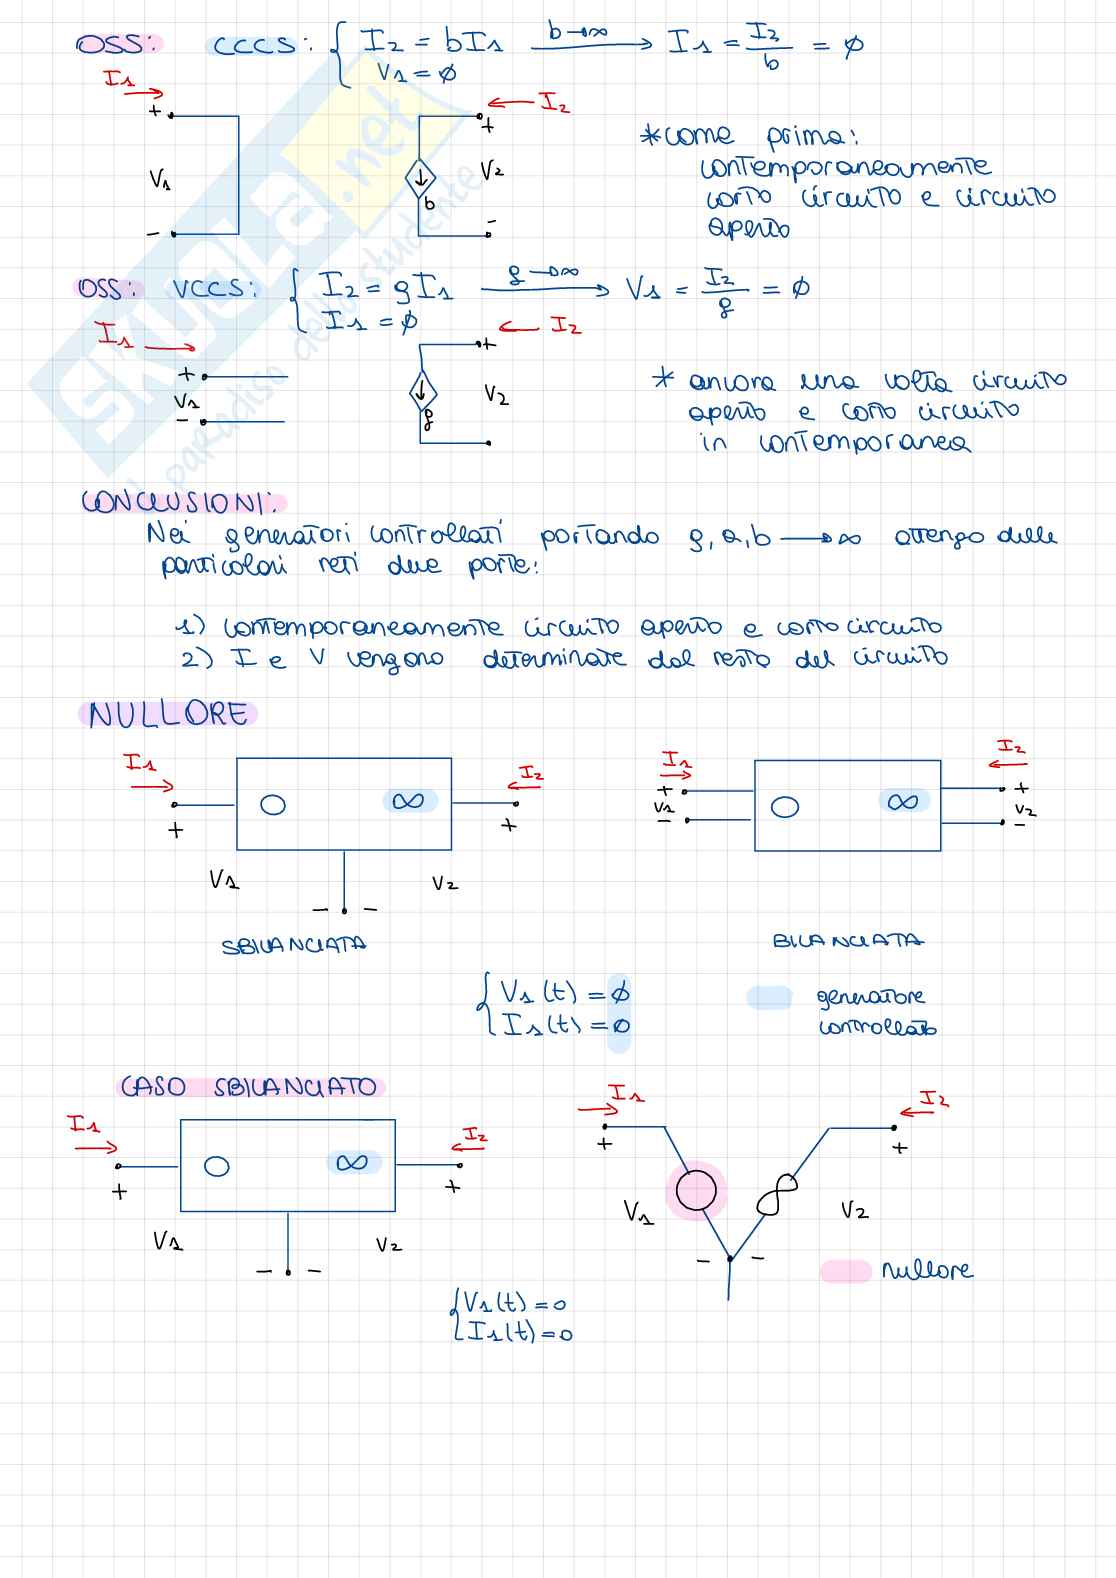 OSS: CCCS: { I2 = bI1 b→∞ I1 = I2/b = ϕ
V1 = ϕ
I1
I2
+ +
V1 V2
b
- -
*come prima:
contemporaneamente
corto circuito e circuito
aperto
OSS: VCCS: { I2 = gI1 g→∞ V1 = I2/g = ϕ
I1 = ϕ
I1 I2
+ +
V1 V2
- g
* ancora una volta circuito
aperto e corto circuito
in contemporanea
CONCLUSIONI:
Nei generatori controllati portando g, a, b → ∞ ottengo delle
particolari reti due porte:
1) contemporaneamente circuito aperto e corto circuito
2) I e V vengono determinate dal resto del circuito
NULLORE
I1 I2
O ∞
+ +
V1 V2
- -
SBILANCIATA
I1 I2
+ +
V1 O ∞ V2
- -
BILANCIATA
{ V1(t) = ϕ
I1(t) = 0
generatore
controllato
CASO SBILANCIATO
I1 I2
O ∞
+ +
V1 V2
- -
I1 I2
+ +
V1 V2
- -
nullore
{ V1(t) = 0
I1(t) = 0
SKUOLA.net
il paradiso dello studente